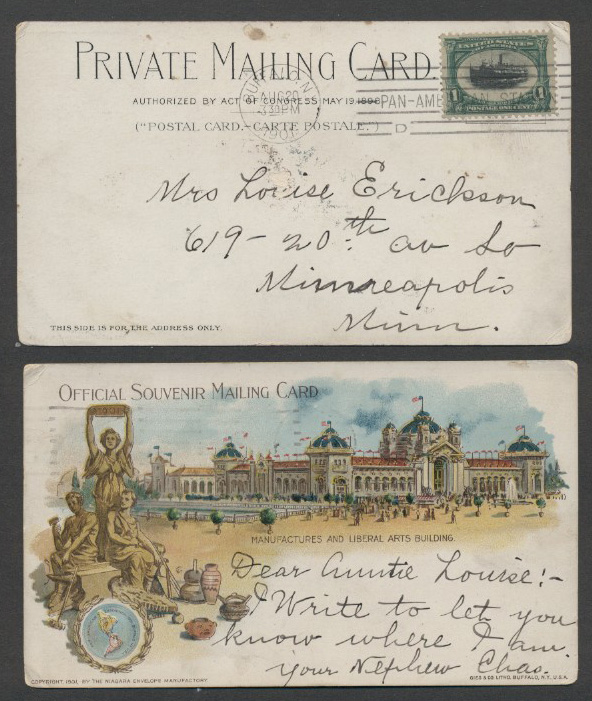 PRIVATE MAILING CARD
AUTHORIZED BY ACT OF CONGRESS MAY 19.1898
("POSTAL CARD.-CARTE POSTALE.")
UNITED STATES
1
1
BUFFALO, N.Y.
AUG 20
3 30 PM
1901
PAN-AME
D
Mrs Louise Erickson
619-20th av So
Minneapolis
Minn.
THIS SIDE IS FOR THE ADDRESS ONLY.
OFFICIAL SOUVENIR MAILING CARD
MANUFACTURES AND LIBERAL ARTS BUILDING.
Dear Auntie Louise!-
I Write to let you
know where I am.
your Nephew Chas.
COPYRIGHT 1901, BY THE NIAGARA ENVELOPE MANUFACTORY
GIES & CO LITHO, BUFFALO, N.Y. U.S.A.